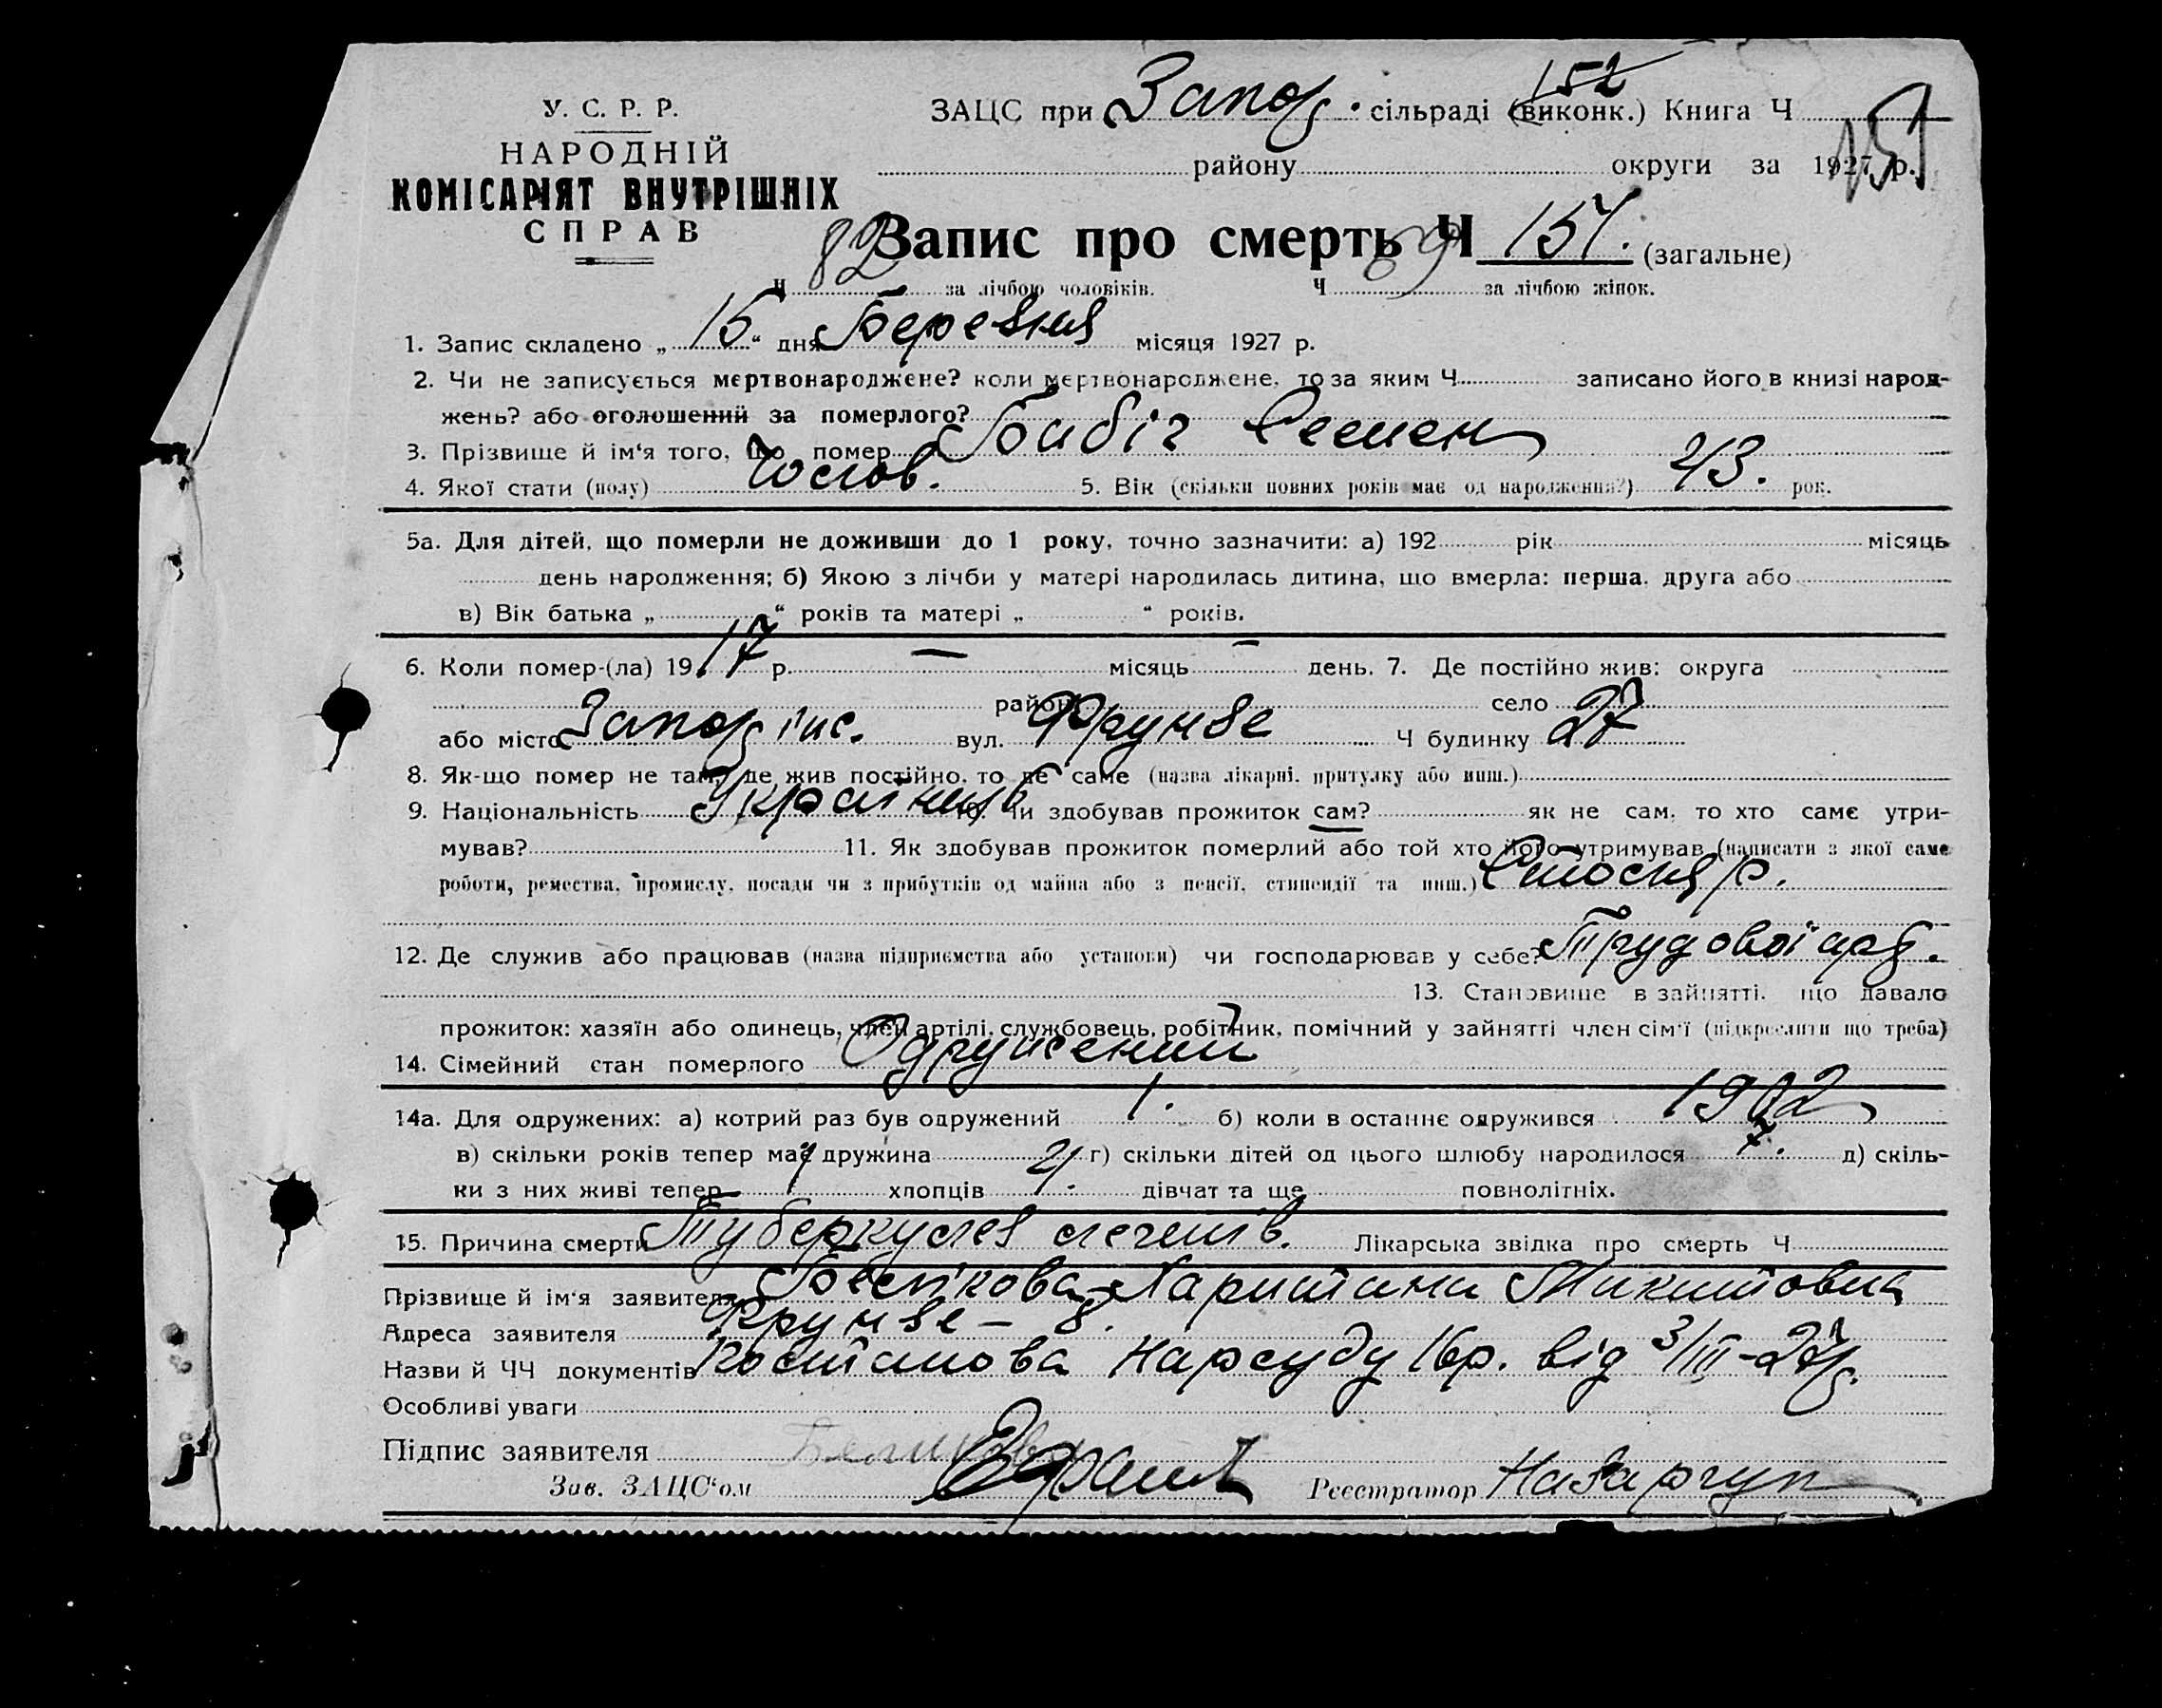 У. С. Р. Р.
НАРОДНІЙ
КОМІСАРІЯТ ВНУТРІШНІХ
СПРАВ
ЗАЦС при Запор. сільраді (виконк.) Книга Ч
152
151
району округи за 1927 р.
Запис про смерть Ч 151. (загальне)
Ч 82 за лічбою чоловіків. Ч 69 за лічбою жінок.
1. Запис складено „ 15 “ дня Березня місяця 1927 р.
2. Чи не записується мертвонароджене? коли мертвонароджене, то за яким Ч записано його в книзі народ-
жень? або оголошений за померлого?
3. Прізвище й ім‘я того, що помер Бабіч Семен
4. Якої стати (полу) Чолов. 5. Вік (скільки повних років має од народження?) 43. рок.
5а. Для дітей, що померли не доживши до 1 року, точно зазначити: а) 192 рік місяць
день народження; б) Якою з лічби у матері народилась дитина, що вмерла: перша, друга або
в) Вік батька „ “ років та матері „ “ років.
6. Коли помер-(ла) 19 17 р. — місяць — день. 7. Де постійно жив: округа
район село
або місто Запоріж. вул. Фрунзе Ч будинку 27
8. Як-що помер не там, де жив постійно, то де саме (назва лікарні, притулку або инш.)
9. Національність Українець 10. Чи здобував прожиток сам? як не сам, то хто саме утри-
мував? 11. Як здобував прожиток померлий або той хто його утримував (написати з якої саме
роботи, ремества, промислу, посади чи з прибутків од майна або з пенсії, стипендії та инш.) Столяр.
12. Де служив або працював (назва підприємства або установи) чи господарював у себе? Трудової арт.
13. Становище в зайнятті, що давало
прожиток: хазяїн або одинець, член артілі, службовець, робітник, помічний у зайнятті член сім‘ї (підкреслити що треба)
14. Сімейний стан померлого Одружений
14а. Для одружених: а) котрий раз був одружений 1. б) коли в останнє одружився 1902
в) скільки років тепер має дружина г) скільки дітей од цього шлюбу народилося 7. д) скіль-
ки з них живі тепер хлопців дівчат та ще повнолітніх.
15. Причина смерти Туберкульоз легенів. Лікарська звідка про смерть Ч
Прізвище й ім‘я заявителя Бєлікова Харитина Микитовна
Адреса заявителя Фрунзе – 8.
Назви й ЧЧ документів Постанова Нарсуду 16р. від 3/ІІІ-27р.
Особливі уваги
Підпис заявителя
Зав. ЗАЦС‘ом Реєстратор Назарчук